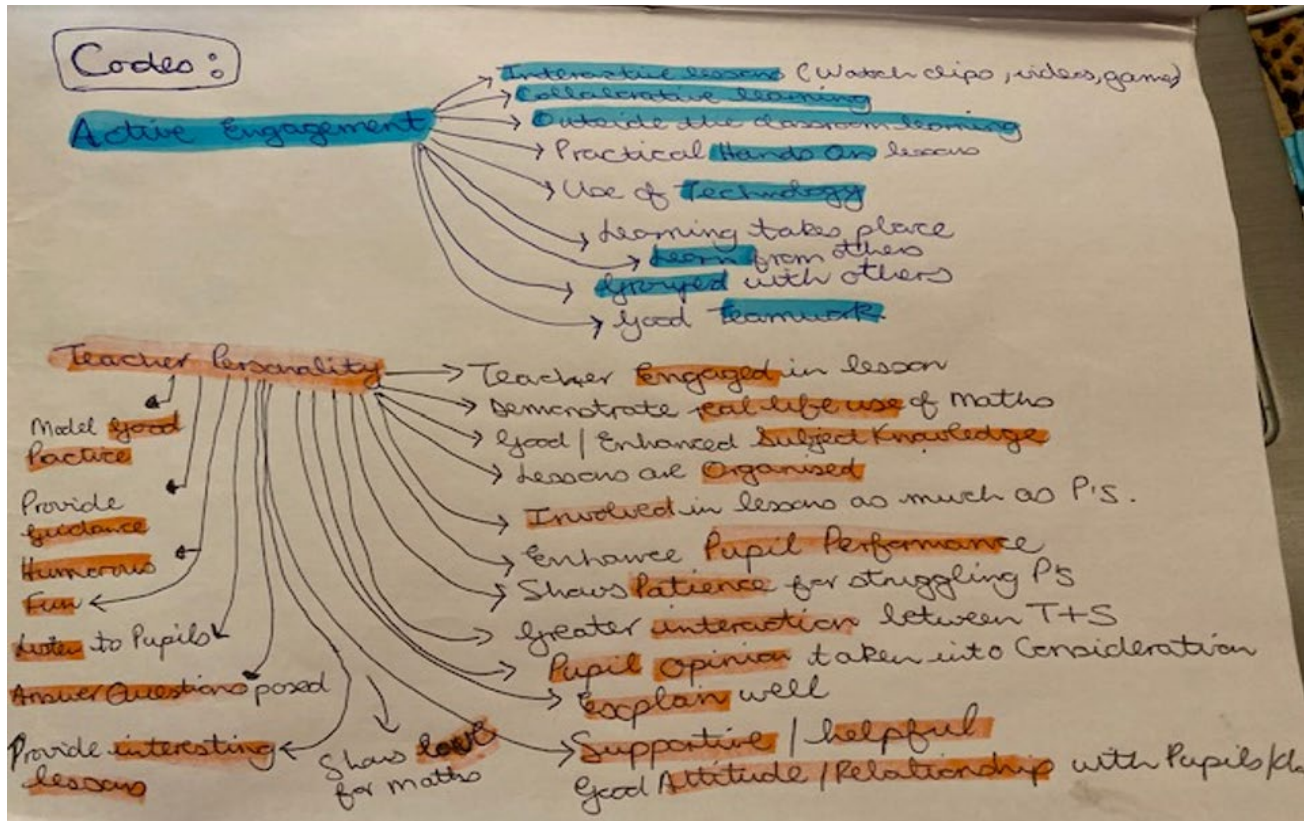 Codes:
Active Engagement
Interactive lessons (Watch clips, videos, games)
Collaborative learning
Outside the classroom learning
Practical Hands On lessons
Use of Technology
Learning takes place
Learn from others
Grouped with others
Good Teamwork
Teacher Personality
Teacher Engaged in lesson
Demonstrate real-life use of maths
Good / Enhanced Subject Knowledge
Lessons are Organised
Involved in lessons as much as P's.
Enhance Pupil Performance
Shows Patience for struggling P's
Greater interaction between T+S
Pupil Opinion taken into Consideration
Explain well
Supportive / helpful
Good Attitude / Relationship with Pupils/
Model Good
Practice
Provide
Guidance
Humorous
Fun
Listen to Pupils
Answer Questions posed
Provide interesting
lessons
Shows love
for maths